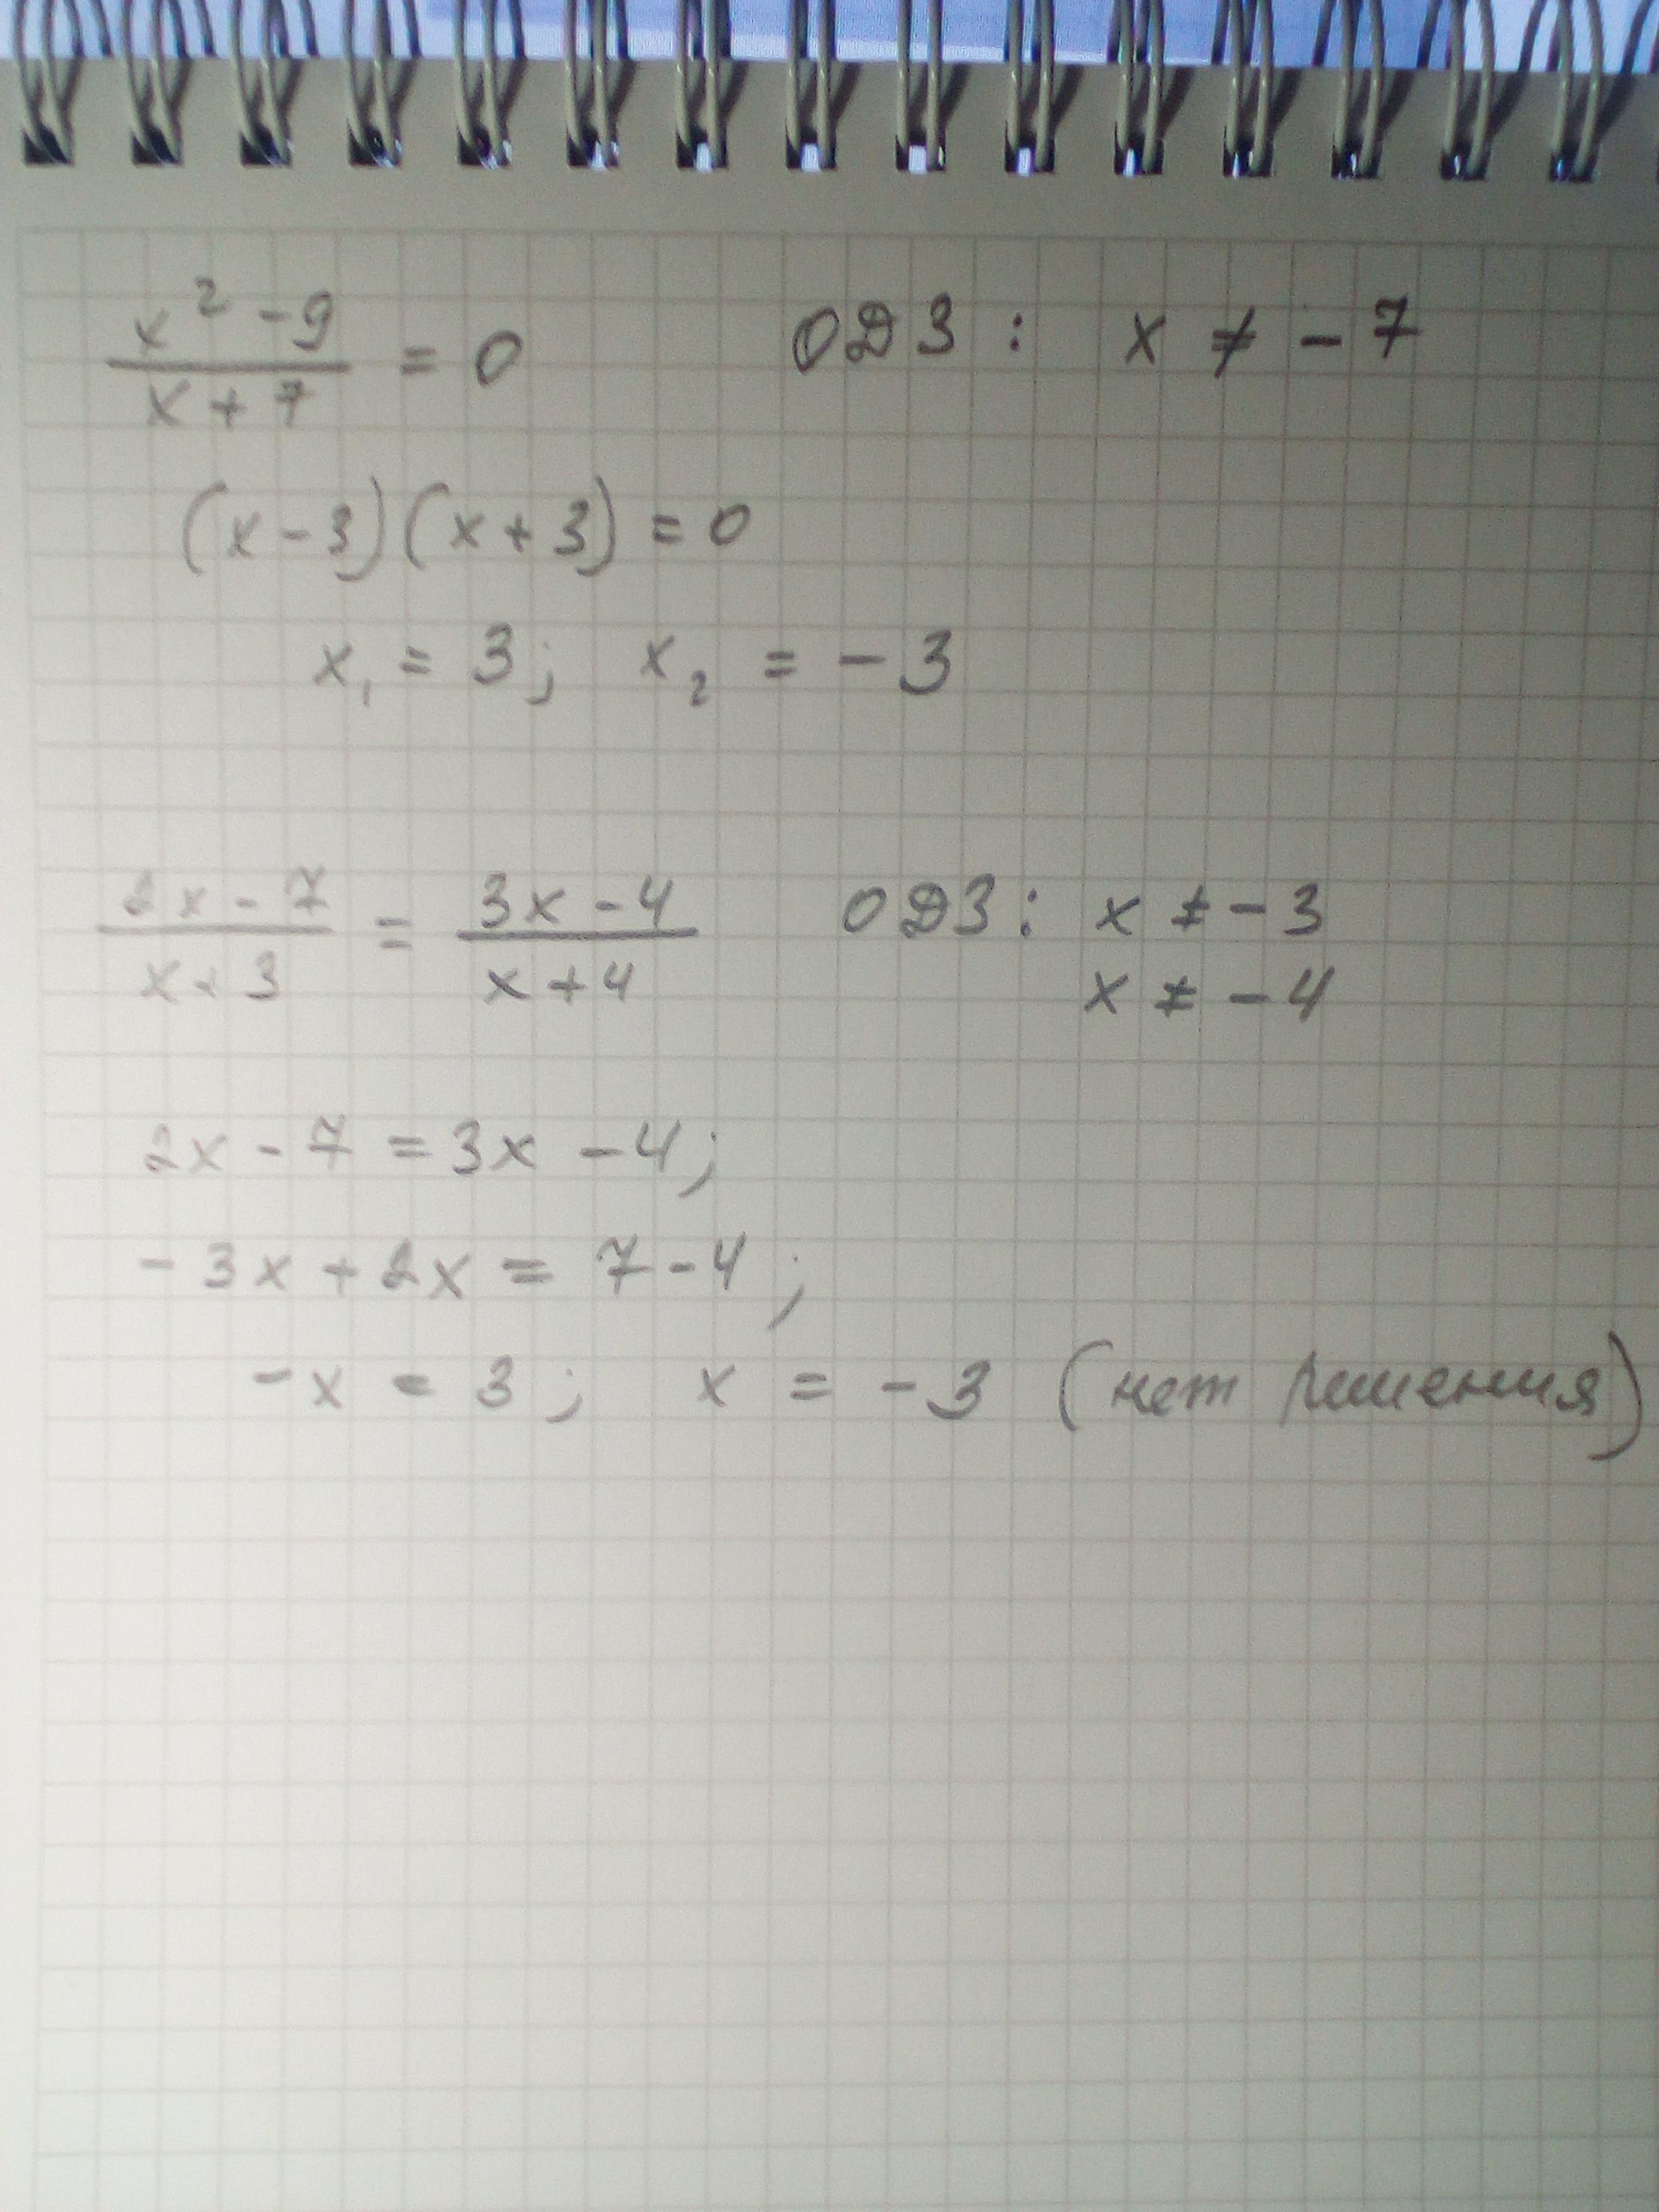 x² - 9 / x + 7 = 0 ОДЗ : x ≠ - 7
(x - 3)(x + 3) = 0
x₁ = 3; x₂ = - 3
2x - 7 / x + 3 = 3x - 4 / x + 4 ОДЗ : x ≠ - 3
x ≠ - 4
2x - 7 = 3x - 4;
- 3x + 2x = 7 - 4;
- x = 3; x = - 3 (нет решения)